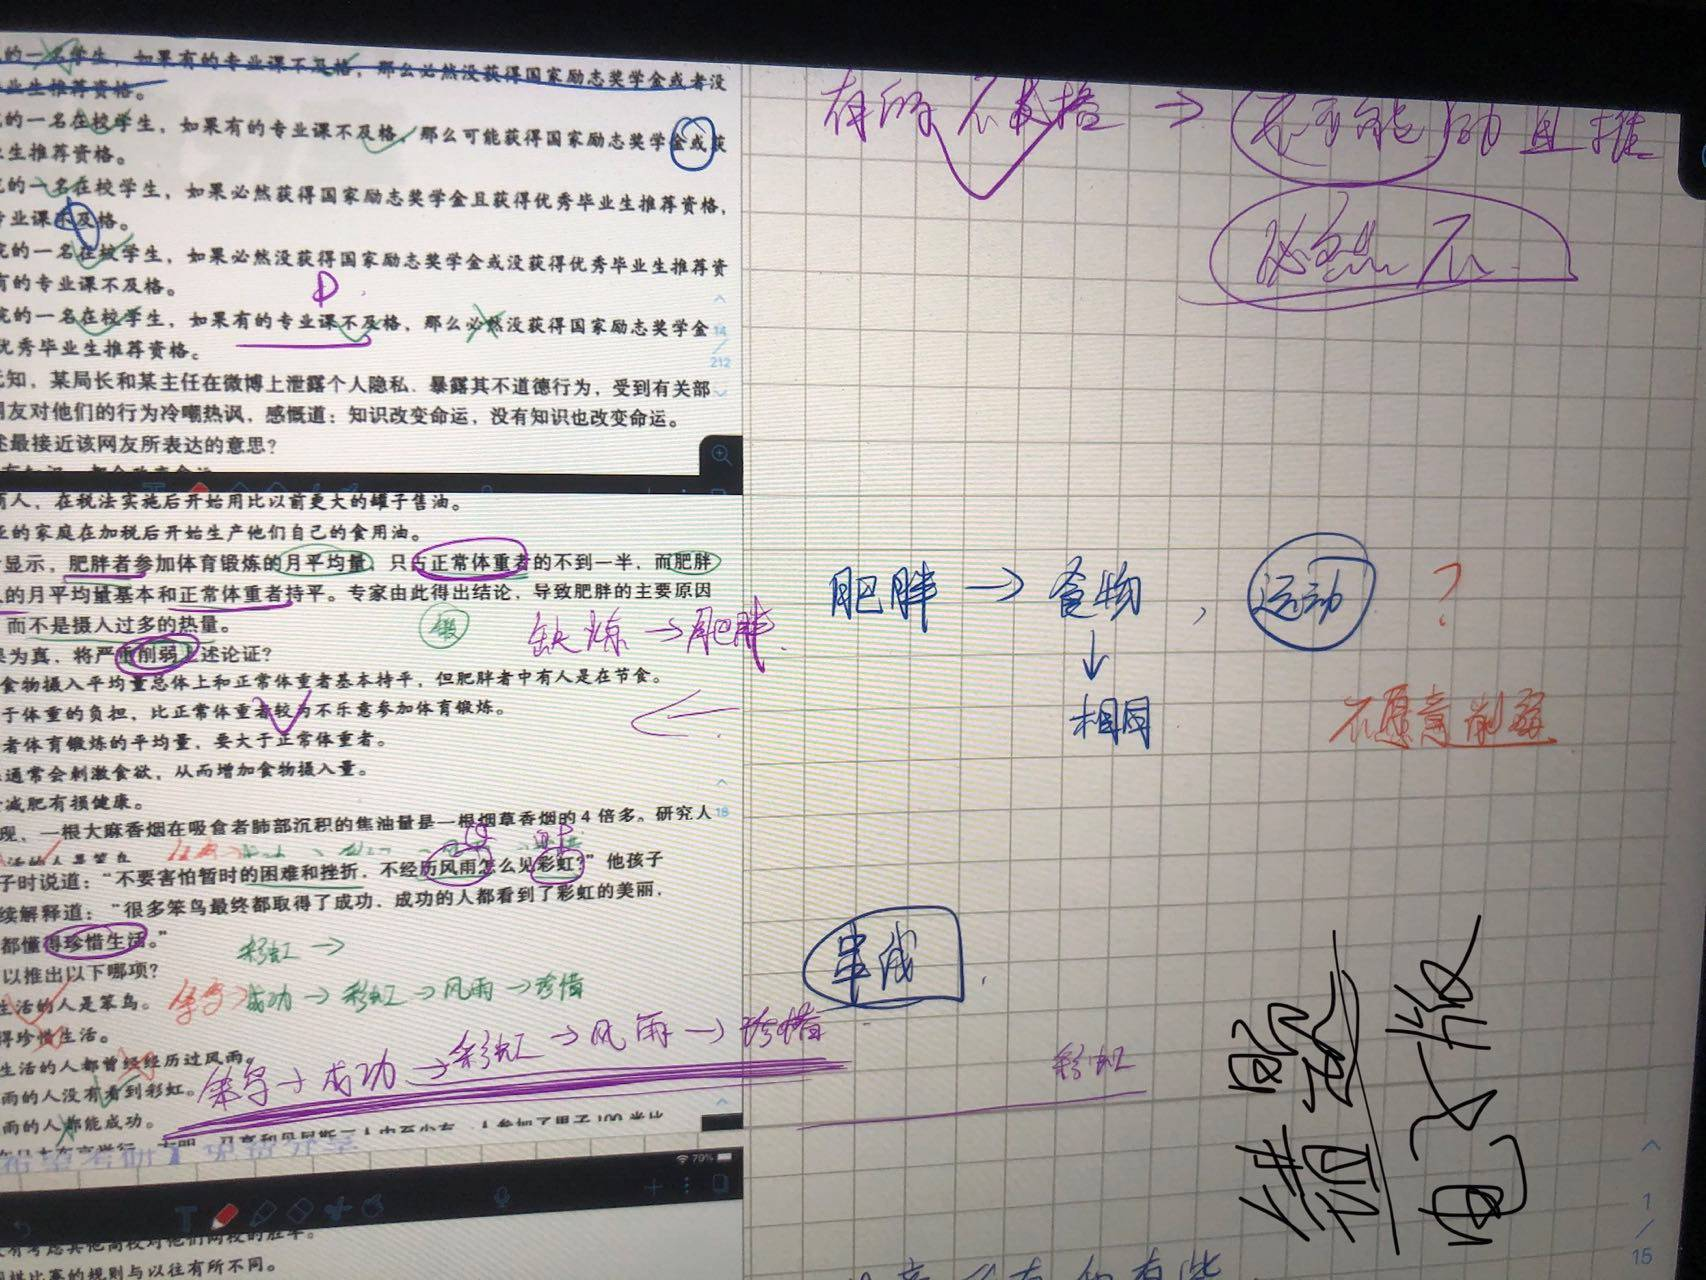 的一名学生，如果有的专业课不及格，那么必然没获得国家励志奖学金或者没
业生推荐资格。
的一名在校学生，如果有的专业课不及格，那么可能获得国家励志奖学金或获
生推荐资格。
的一名在校学生，如果必然获得国家励志奖学金且获得优秀毕业生推荐资格，
专业课不及格。
院的一名在校学生，如果必然没获得国家励志奖学金或没获得优秀毕业生推荐资
有的专业课不及格。
D
院的一名在校学生，如果有的专业课不及格，那么必然没获得国家励志奖学金
优秀毕业生推荐资格。
14
/
212
无知，某局长和某主任在微博上泄露个人隐私、暴露其不道德行为，受到有关部
网友对他们的行为冷嘲热讽，感慨道：知识改变命运，没有知识也改变命运。
述最接近该网友所表达的意思？
有的不及格 → 不可能 励且推
必然不
有人，在税法实施后开始用比以前更大的罐子售油。
的家庭在加税后开始生产他们自己的食用油。
显示，肥胖者参加体育锻炼的月平均量，只占正常体重者的不到一半，而肥胖
的月平均量基本和正常体重者持平。专家由此得出结论，导致肥胖的主要原因
而不是摄入过多的热量。
缺炼 → 肥胖
果为真，将严重削弱上述论证？
食物摄入平均量总体上和正常体重者基本持平，但肥胖者中有人是在节食。
于体重的负担，比正常体重者较为不乐意参加体育锻炼。
者体育锻炼的平均量，要大于正常体重者。
通常会刺激食欲，从而增加食物摄入量。
减肥有损健康。
现，一根大麻香烟在吸食者肺部沉积的焦油量是一根烟草香烟的4倍多。研究人
18
肥胖 → 食物，运动 ？
↓
相同
不愿意削弱
子时说道：“不要害怕暂时的困难和挫折，不经历风雨怎么见彩虹？”他孩子
续解释道：“很多笨鸟最终都取得了成功，成功的人都看到了彩虹的美丽，
都懂得珍惜生活。”
彩虹 →
以推出以下哪项？
生活的人是笨鸟。
笨鸟→成功 → 彩虹 → 风雨 → 珍惜
得珍惜生活。
生活的人都曾经经历过风雨。
雨的人没有看到彩虹。
笨鸟 → 成功 → 彩虹 → 风雨 → 珍惜
雨的人都能成功。
串成
彩虹
79%
比赛的规则与以往有所不同。
1
/
15